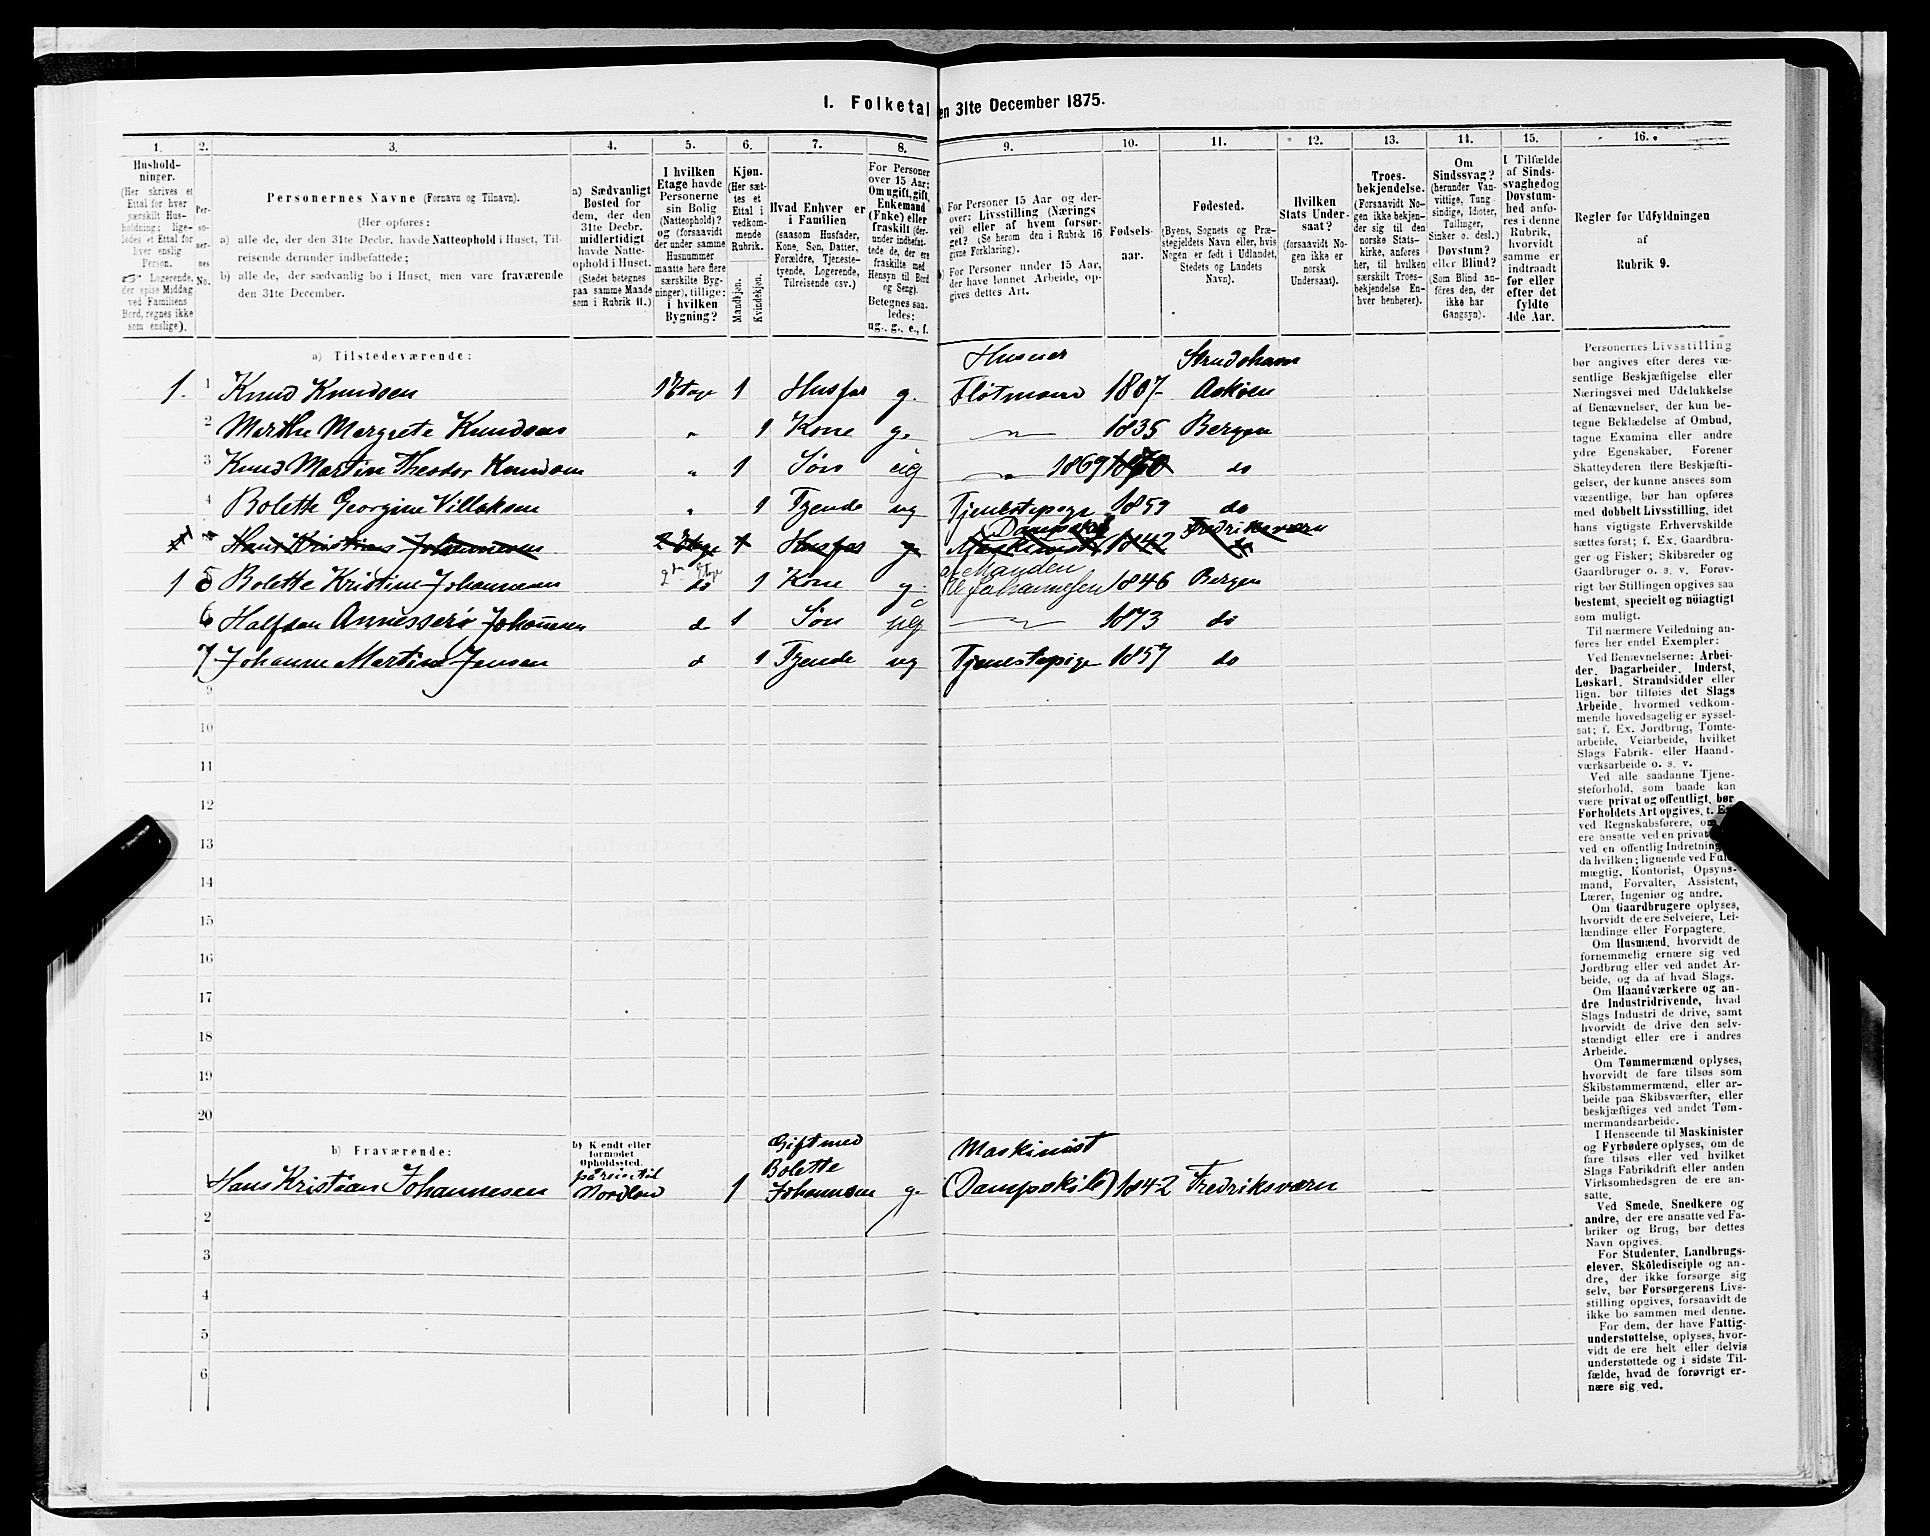 1. Folketal den 31te December 1875.
1. 2. 3. 4. 5. 6. 7. 8. 9. 10. 11. 12. 13. 14. 15. 16.
Hushold-
ninger.
(Her skrives et
Ettal for hver
særskilt Hus-
holdning; lige-
ledes et Ettal for
hver enslig
Person.
Logerende,
der spise Middag
ved Familiens
Bord, regnes ikke
som enslige).
Per-
so-
ner-
nes
No.
Personernes Navne (Fornavn og Tilnavn).
(Her opføres:
a) alle de, der den 31te Decbr. havde Natteophold i Huset, Til-
reisende derunder indbefattede;
b) alle de, der sædvanlig bo i Huset, men vare fraværende
den 31te December.
a) Sædvanligt
Bosted for
dem, der den
31te Decbr.
midlertidigt
havde Natte-
ophold i Huset.
(Stedet betegnes
paa samme Maade
som i Rubrik 11.)
I hvilken
Etage havde
Personerne
sin Bolig
(Natteophold)?
og (forsaavidt
der under samme
Husnummer
maatte høre flere
særskilte Byg-
ninger), tillige:
i hvilken
Bygning?
Kjøn.
(Her sæt-
tes et
Ettal i
vedkom-
mende
Rubrik.
Mandkjøn.
Kvindekjøn.
Hvad Enhver er
i Familien
(saasom Husfader,
Kone, Søn, Datter,
Forældre, Tjeneste-
tyende, Logerende,
Tilreisende osv.)
For Personer
over 15 Aar:
Om ugift, gift,
Enkemand
(Enke) eller
fraskilt (der-
under indbefat-
tede de, der ere
fraskilte med
Hensyn til Bord
og Seng).
Betegnes saa-
ledes:
ug., g., e., f.
a) For Personer 15 Aar og der-
over: Livsstilling (Nærings
vei) eller af hvem forsør-
get? (Se herom den i Rubrik 16
givne Forklaring).
b) For Personer under 15 Aar,
der have lønnet Arbeide, op-
gives dettes Art.
Fødsels-
aar.
Fødested.
(Byens, Sognets og Præ-
stegjeldets Navn eller, hvis
Nogen er født i Udlandet,
Stedets og Landets
Navn).
Hvilken
Stats Under-
saat?
(forsaavidt No-
gen ikke er
norsk
Undersaat).
Troes-
bekjendelse.
(Forsaavidt No-
gen ikke bekjen-
der sig til den
norske Stats-
kirke, anføres
her, til hvilken
særskilt Troes-
bekjendelse En-
hver henhører).
Om
Sindssvag?
(herunder Van-
vittige, Tung-
sindige, Idioter,
Tullinger,
Sinker o. desl.)
Døvstum?
eller Blind?
(Som Blind an-
føres den, der
ikke har
Gangsyn).
I Tilfælde
af Sinds-
svaghed og
Døvstum-
hed anfø-
res i denne
Rubrik,
hvorvidt
samme er
indtraadt
før eller
efter det
fyldte
4de Aar.
Regler for Udfyldningen
af
Rubrik 9.
a) Tilstedeværende:
Husuer Strudshavn
1. 1 Knud Knudsen 1 Etage 1 Husfar g. Flotmand 1807 Askøen
2 Marthe Margrete Knudsen " 1 Kone g. " 1835 Bergen
3 Knud Martin Theodor Knudsen " 1 Søn ug " 1869 1870 do
4 Bolette Georgine Villaksen " 1 Tjende ug Tjenestepige 1859 do
Dampskib Fredriksværn
1 Hans Kristian Johannesen 2 Etage 1 Husfar g. Maskinist 1842
2den Etage af Manden
1 5 Bolette Kristine Johannesen do 1 Kone g. Johannesen 1846 Bergen
6 Halfdan Annesserø Johannesen d 1 Søn ug " 1873 do
7 Johanne Martine Jensen d 1 Tjende ug Tjenestepige 1857 do
9
10
11
12
13
14
15
16
17
18
19
20
b) Fraværende:
b) Kjendt eller
formodet
Opholdssted.
Gift med
Bolette
Maskinist
på reise til
1 Hans Kristian Johannesen Nordland 1 Johannesen g. (Dampskib) 1842 Fredriksværn
2
3
4
5
6
Personernes Livsstilling
bør angives efter deres væ-
sentlige Beskjæftigelse eller
Næringsvei med Udelukkelse
af Benævnelser, der kun be-
tegne Beklædelse af Ombud,
tagne Examina eller andre
ydre Egenskaber. Forener
Skatteyderen flere Beskjæfti-
gelser, der kunne ansees som
væsentlige, bør han opføres
med dobbelt Livsstilling, idet
hans vigtigste Erhvervskilde
sættes først; f. Ex. Gaardbru-
ger og Fisker; Skibsreder og
Gaardbruger o. s. v. Forøv-
rigt bør Stillingen opgives saa
bestemt, specielt og nøiagtigt
som muligt.
Til nærmere Veiledning an-
føres her endel Exempler:
Ved Benævnelserne: Arbei-
der, Dagarbeider, Inderst,
Løskarl, Strandsidder eller
lign. bør tilføies det Slags
Arbeide, hvormed vedkom-
mende hovedsagelig er syssel-
sat; f. Ex. Jordbrug, Tomte-
arbeide, Veiarbeide, hvilket
Slags Fabrik- eller Haand-
værksarbeide o. s. v.
Ved alle saadanne Tjene-
steforhold, som baade kan
være privat og offentligt, bør
Forholdets Art opgives, f. Ex.
ved Regnskabsførere, om de
ere ansatte ved en privat eller
ved en offentlig Indretning og
da hvilken; lignende ved Fuld-
mægtig, Kontorist, Opsyns-
mand, Forvalter, Assistent,
Lærer, Ingeniør og andre.
Om Gaardbrugere oplyses,
hvorvidt de ere Selveiere, Lei-
lændinge eller Forpagtere.
Om Husmænd, hvorvidt de
fornemmelig ernære sig ved
Jordbrug eller ved andet Ar-
beide, og da af hvad Slags.
Om Haandværkere og an-
dre Industridrivende, hvad
Slags Industri de drive, samt
hvorvidt de drive den selv-
stændigt eller ere i andres
Arbeide.
Om Tømmermænd oplyses,
hvorvidt de fare tilsøs som
Skibstømmermænd, eller ar-
beide paa Skibsværfter, eller
beskjæftiges ved andet Tøm-
mermandsarbeide.
I Henseende til Maskinister
og Fyrbødere oplyses, om de
fare tilsøs eller ved hvilket
Slags Fabrikdrift eller anden
Virksomhedsgren de ere an-
satte.
Ved Smede, Snedkere og
andre, der ere ansatte ved Fa-
briker og Brug, bør dettes
Navn opgives.
For Studenter, Landbrugs-
elever, Skoledisciple og an-
dre, der ikke forsørge sig
selv, bør Forsørgerens Livs-
stilling opgives, forsaavidt de
ikke bo sammen med denne.
For dem, der have Fattig-
understøttelse, oplyses, hvor-
vidt de ere helt eller delvis
understøttede og i sidste Til-
fælde, hvad de forøvrigt er-
nære sig ved.